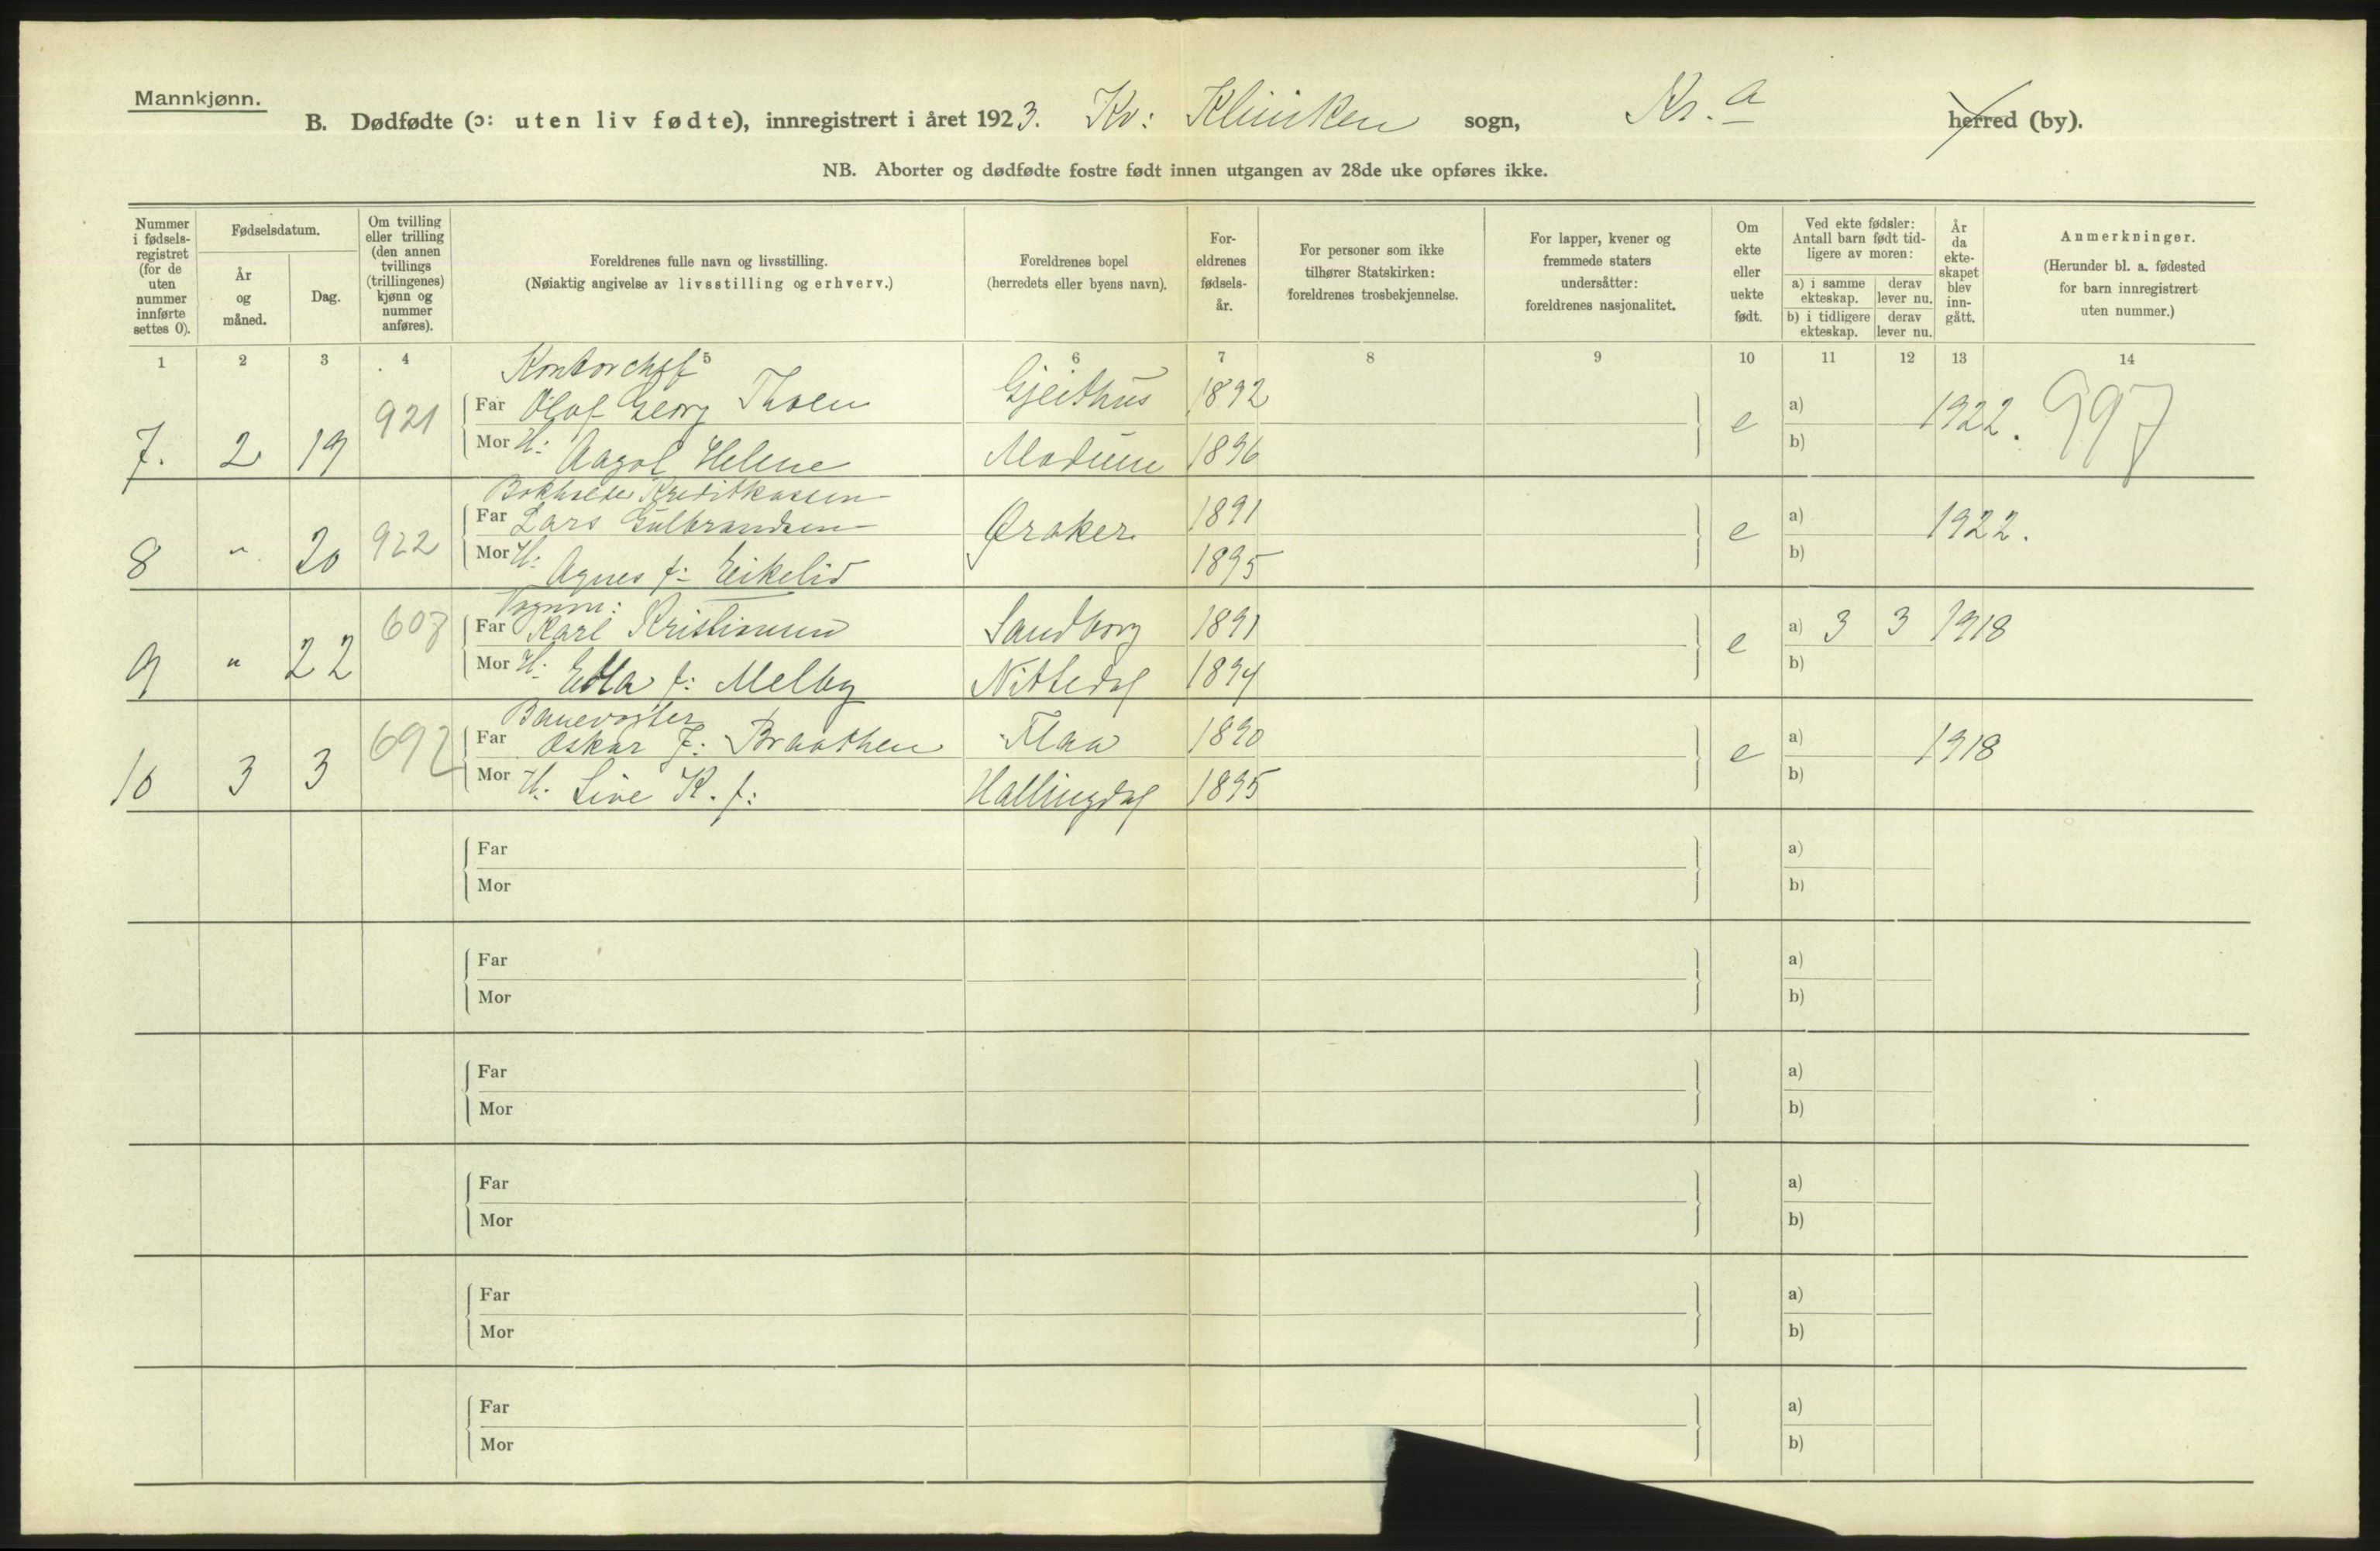 Mannkjønn.
B. Dødfødte (ɔ: uten liv fødte), innregistrert i året 1923. Kv: Kliniken sogn, Kr.a herred (by).
NB. Aborter og dødfødte fostre født innen utgangen av 28de uke opføres ikke.
Nummer i fødselsregistret (for de uten nummer innførte settes 0).
Fødselsdatum.
År og måned.
Dag.
Om tvilling eller trilling (den annen tvillings (trillingenes) kjønn og nummer anføres).
Foreldrenes fulle navn og livsstilling.
(Nøiaktig angivelse av livsstilling og erhverv.)
Foreldrenes bopel
(herredets eller byens navn).
Foreldrenes fødselsår.
For personer som ikke tilhører Statskirken: foreldrenes trosbekjennelse.
For lapper, kvener og fremmede staters undersåtter: foreldrenes nasjonalitet.
Om ekte eller uekte født.
Ved ekte fødsler: Antall barn født tidligere av moren:
a) i samme ekteskap. derav lever nu.
b) i tidligere ekteskap. derav lever nu.
År da ekteskapet blev inngått.
Anmerkninger.
(Herunder bl. a. fødested for barn innregistrert uten nummer.)
1 2 3 4 5 6 7 8 9 10 11 12 13 14
Kontorchef
7. 2 19 921 Far Olof Georg Thoen Gjeithus 1892 e a) 1922. 997
Mor H: Aagot Helene Modum 1896 b)
Bokholder Kreditkassen
8 " 20 922 Far Lars Gulbrandsen Øraker 1891 e a) 1922.
Mor H: Agnes f: Eikelid 1895 b)
Vognm:
9 " 22 607 Far Karl Kristiansen Sandborg 1891 e a) 3 3 1918
Mor H: Edla f: Melby Nittedal 1894 b)
Banevogter
10 3 3 692 Far Oskar J: Braathen Flaa 1890 e a) 1918
Mor H: Live K. f: Hallingdal 1895 b)
Far a)
Mor b)
Far a)
Mor b)
Far a)
Mor b)
Far a)
Mor b)
Far a)
Mor b)
Far a)
Mor b)